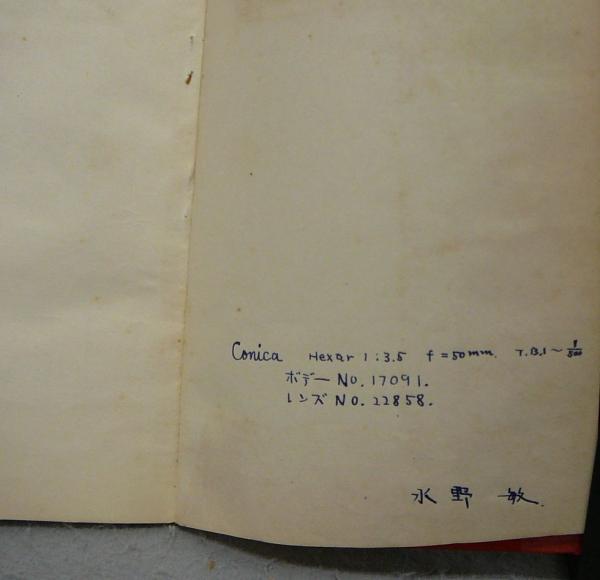 Conica Hexar 1:3.5 f=50mm. T.B.1~1/500
ボデー No.17091.
レンズ No.22858.
水野 敏.